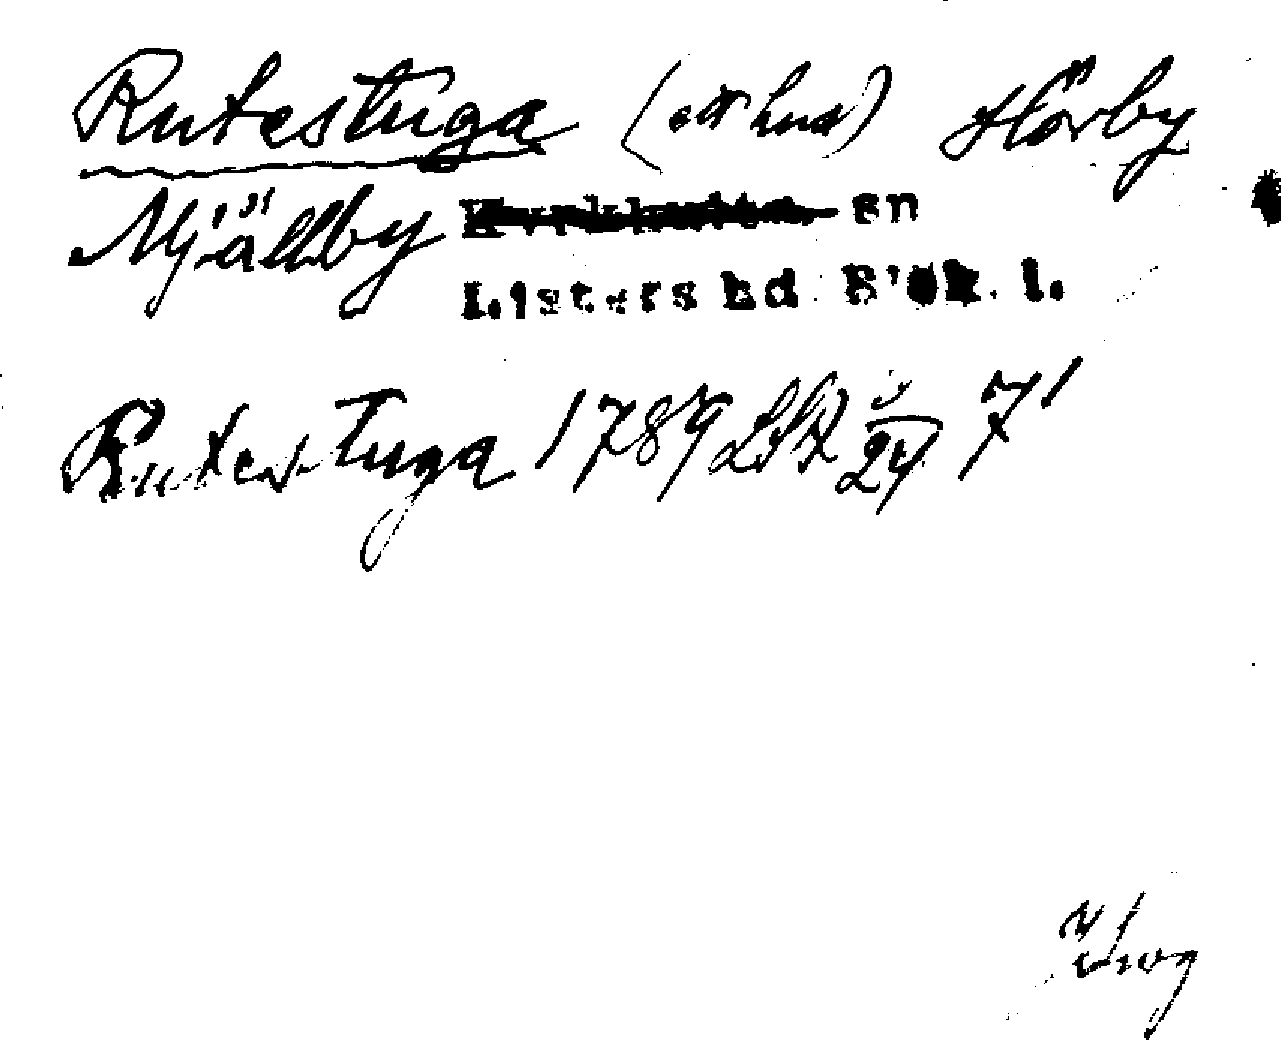 Rutestuga (ett hus) Hörby
Mjällby sn
Listers hd B'ok. l.
Rutestuga 1789 LSA 24 7'